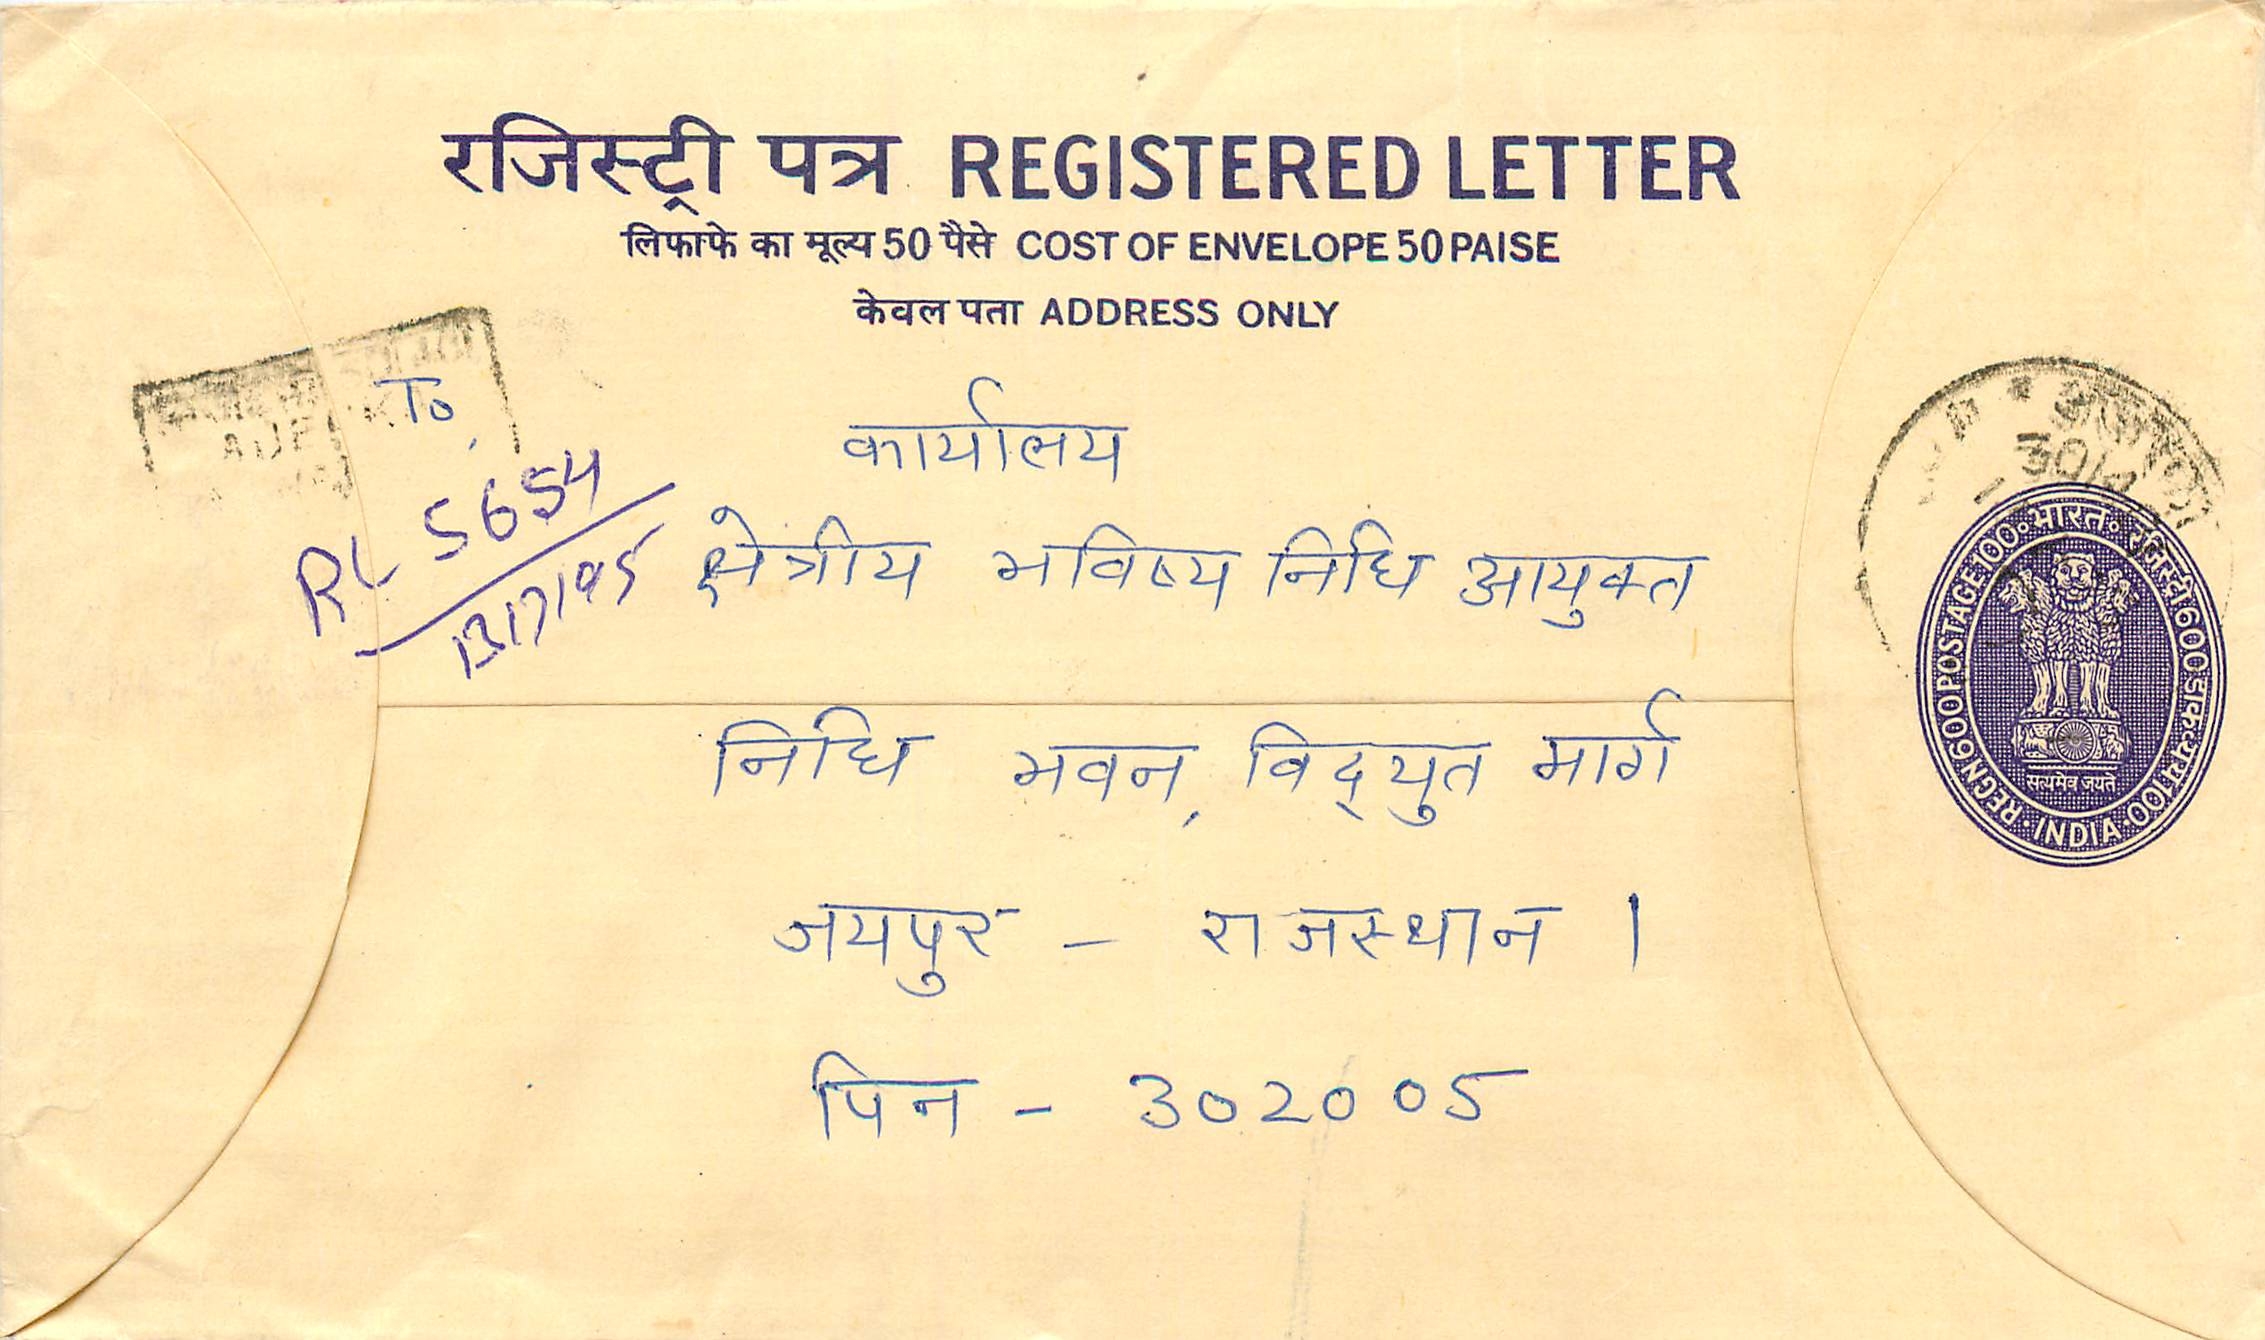 रजिस्ट्री पत्र REGISTERED LETTER
लिफाफे का मूल्य 50 पैसे COST OF ENVELOPE 50 PAISE
केवल पता ADDRESS ONLY
To,
कार्यालय
RL 5654
क्षेत्रीय भविष्य निधि आयुक्त
निधि भवन, विद्युत मार्ग
जयपुर - राजस्थान ।
पिन - 302005
भारत
रजिस्ट्री 600 डाक व्यय 100
INDIA
REGN 600 POSTAGE 100
सत्यमेव जयते